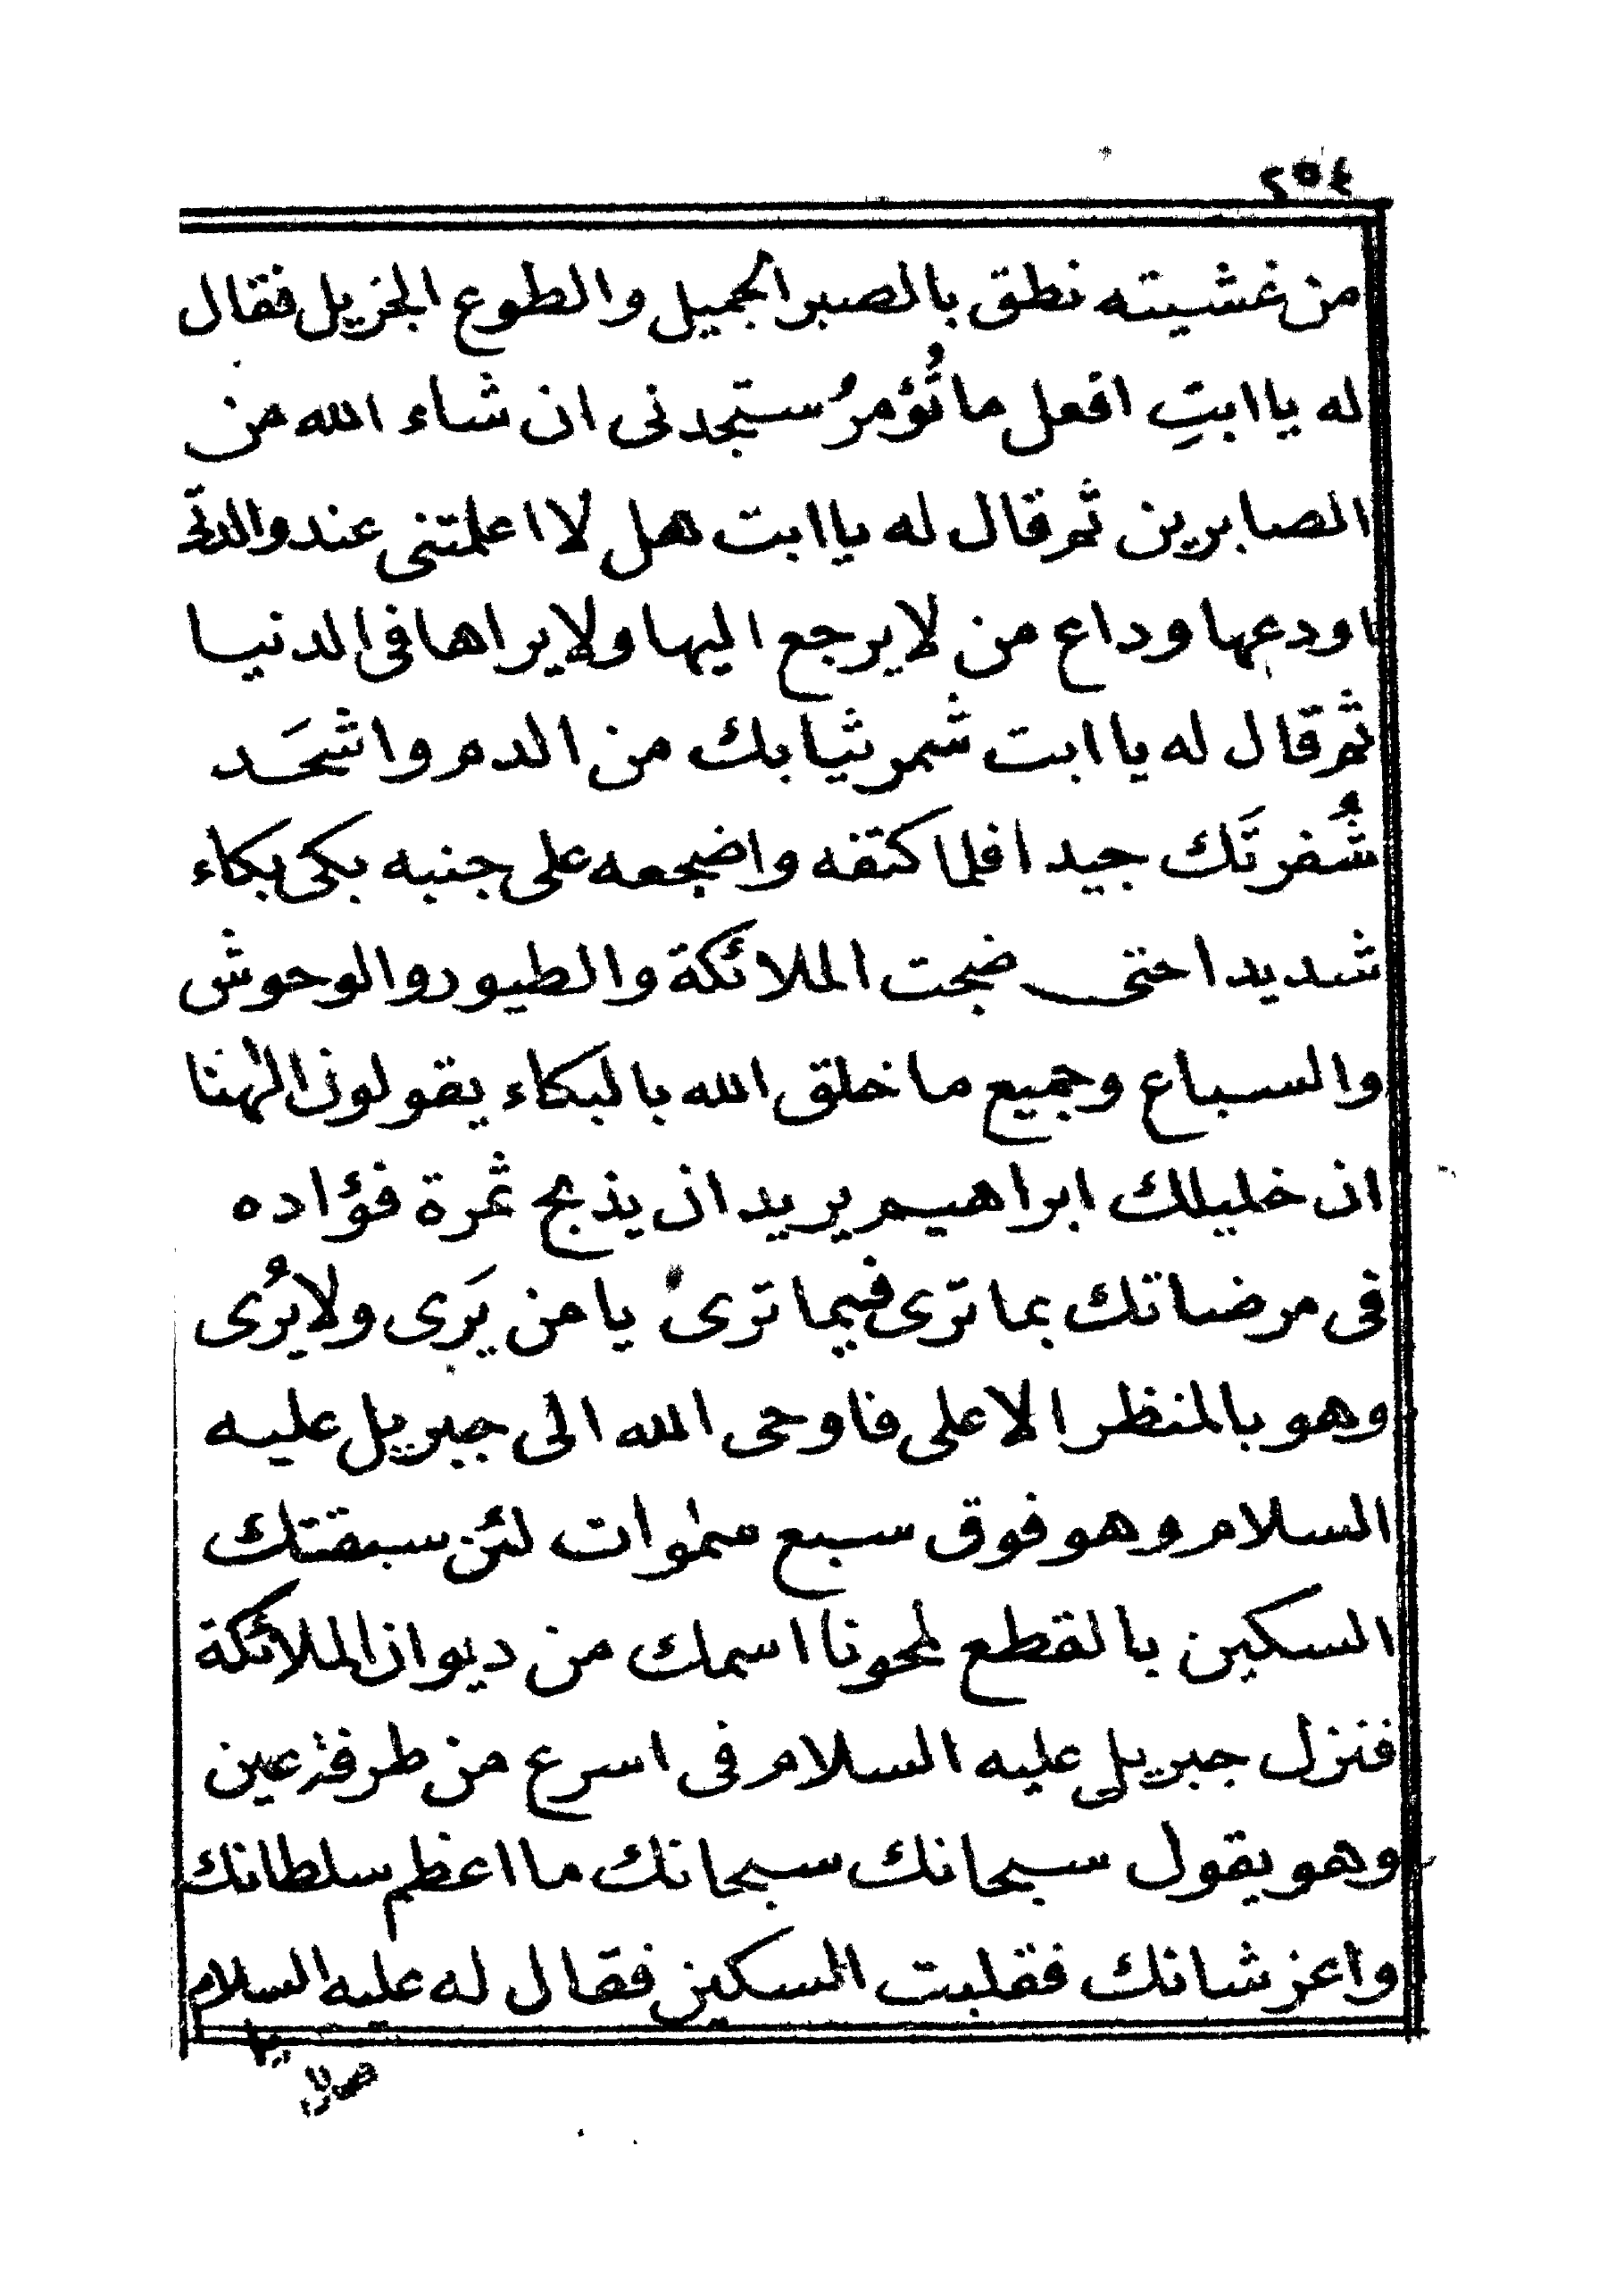 ٢٥٤
من غشيته نطق بالصبر الجميل والطوع الجزيل فقال
له يا ابتِ افعل ما تُؤمرُ ستجدنى ان شاء الله من
الصابرين ثم قال له يا ابت هل لا اعلمتنى عند والدتى
اودعها وداع من لا يرجع اليها ولا يراها فى الدنيا
ثم قال له يا ابت شمر ثيابك من الدم واشحَد
شُفرتَك جيدا فلما كتفه واضجعه على جنبه بكى بكاء
شديدا حتى ضجت الملائكة والطيور والوحوش
والسباع وجميع ما خلق الله بالبكاء يقولون الٰهنا
ان خليلك ابراهيم يريد ان يذبح ثمرة فؤاده
فى مرضاتك بما ترى فيما ترى يا من يَرى ولا يُرى
وهو بالمنظر الاعلى فاوحى الله الى جبريل عليه
السلام وهو فوق سبع سمٰوات لئن سبقتك
السكين بالقطع لمحونا اسمك من ديوان الملائكة
فنزل جبريل عليه السلام فى اسرع من طرفة عين
وهو يقول سبحانك سبحانك ما اعظم سلطانك
واعز شانك فقلبت السكين فقال له عليه السلام